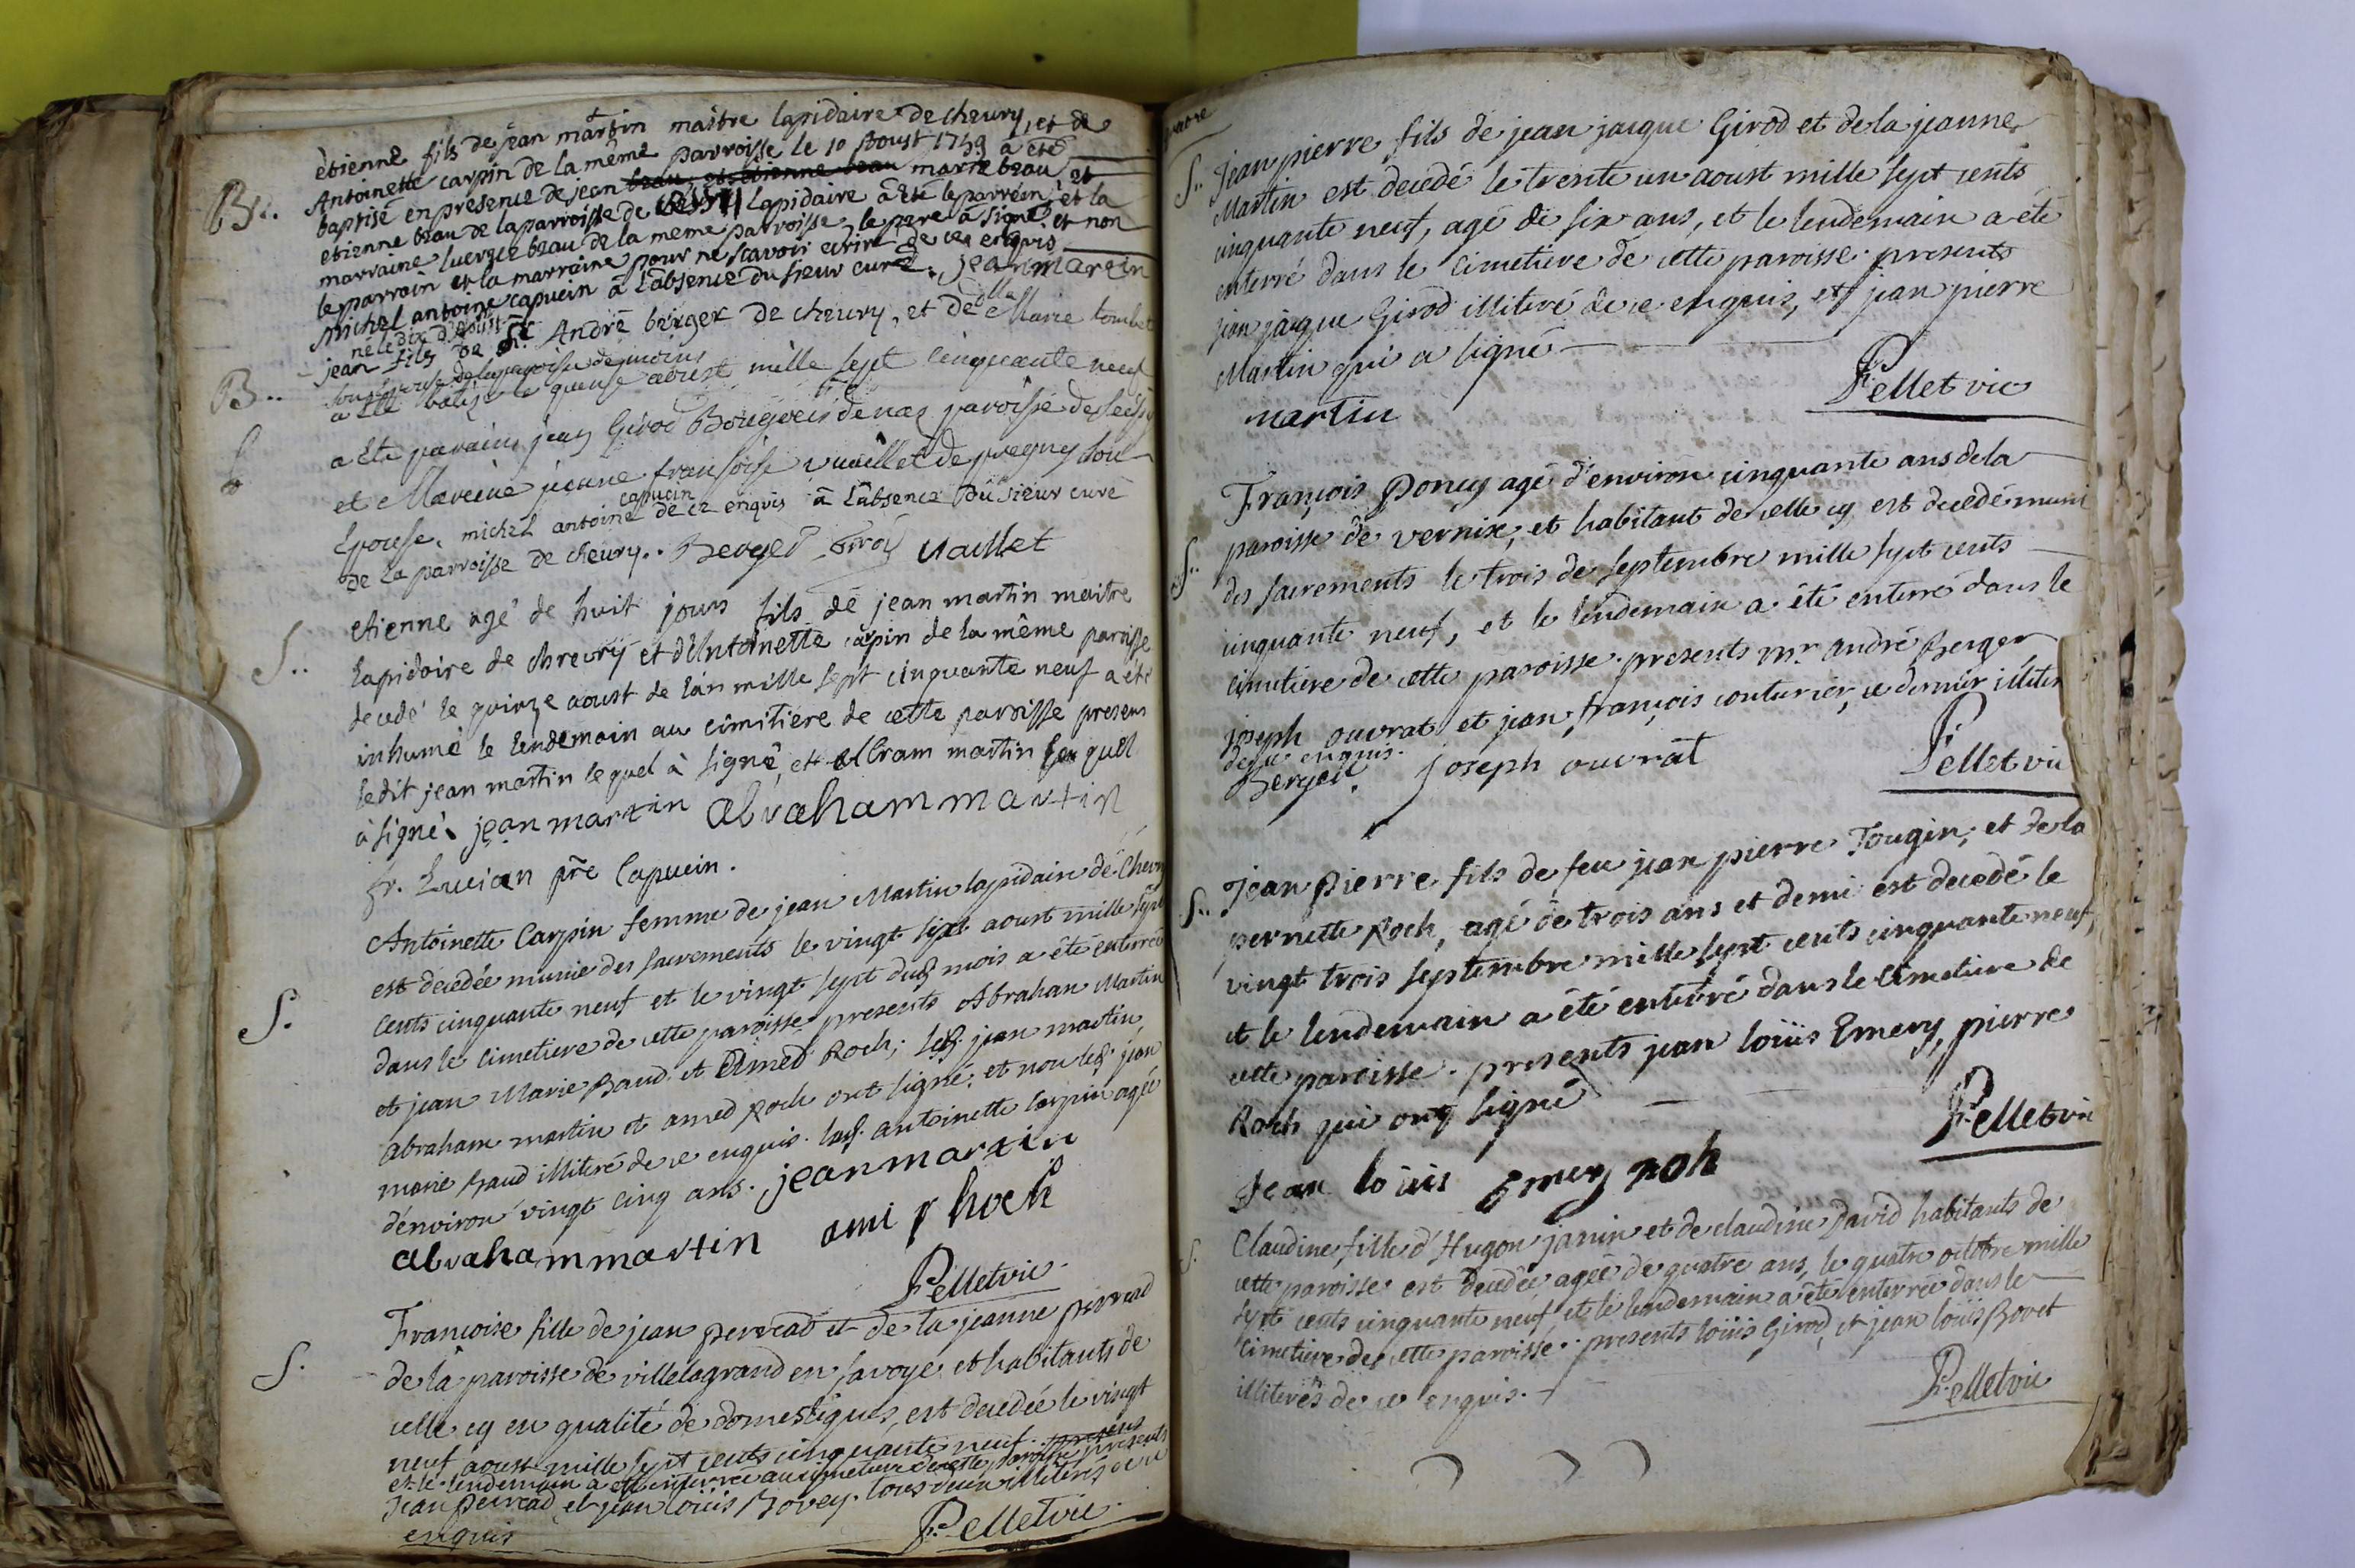 étienne fils de jean martin maître lapidaire de cheury, et de
B.. Antoinette carpin de la même parroisse le 10 Aoust 1759 a été
baptisé en presence de jean beau, et étienne beau marie beau
etienne beau de la parroisse de lapidaire a été le parrein, et la
marraine beau de la meme parroisse, le pere à signé et non
le parrain et la marraine pour ne scavoir ecrire de ce enquis
Michel antoine capucin à l'absence du sieur curé. jean martin
né le dix d'aoust
B.. jean fils de Sr. André berger de cheury, et de dlla Marie
son épouse de la paroisse de moins
a été batizé le quense aoust mille sept cinquante neuf
a été parains jean Girod Bourgeois de paroisse de
et Mareine jeanne fransoise vuaillet de pregny son
capucin
Epouse. michel antoine de ce enquis à l'absence du sieur curé
de la parroisse de cheury.. Berger Girod Vaillet
S.. etienne agé de huit jours fils de jean martin maitre
lapidaire de chevry et d'Antoinette carpin de la même paroisse
decedé le quinze aoust de l'an mille sept cinquante neuf a été
inhumé le lendemain au cimitière de cette paroisse presens
ledit jean martin lequel à signé, et Abram martin lequel
à signé. jean martin abraham martin
fr. Lucien pre Capucin.
Antoinette Carpin femme de jean Martin lapidaire de Chevry
est decedée munie des sacrements le vingt sixt aoust mille sept
S. cents cinquante neuf et le vingt sept dud mois a été enterrée
dans le cimetiere de cette paroisse presents Abraham Martin
et jean Marie Baud et Amed Roch; led. jean martin,
abraham martin et amed roch ont signé, et non led. jean
marie baud illiteré de ce enquis. lad. antoinette carpin agée
d'environ vingt cinq ans. jean martin
abraham martin ami rhoch
Pellet vic.
Francoise fille de jean perread et de la jeanne perread
S. de la paroisse de villelagrand en savoye et habitants de
celle cy en qualité de domestiques, est decedée le vingt
neuf aoust mille sept cents cinquante neuf. presens
et le lendemain a été enterrée au cimetiere de cette paroisse presents
Jean perread et jean louis Bovey. tous deux illiterés de ce
enquis Pellet vic.
S.. Jean pierre fils de jean jacque Girod et de la jeanne
Martin est decedé le trente un aoust mille sept cents
cinquante neuf, agé de six ans, et le lendemain a été
enterré dans le cimetiere de cette paroisse. presents
jean jacque Girod illiteré de ce enquis, et jean pierre
Martin qui a signé
martin Pellet vic
François Poncy agé d'environ cinquante ans de la
paroisse de vernix, et habitant de celle cy est decedé muni
S.. des sacrements le trois de septembre mille sept cents
cinquante neuf, et le lendemain a été enterré dans le
cimetiere de cette paroisse. presents mr. andré Berger
joseph ouvrat et jean françois couturier, ce dernier illiter
de ce enquis.
Berger. joseph ouvrat Pellet vic
S.. Jean Pierre fils de feu jean pierre Tougin; et de la
pernette Roch, agé de trois ans et demi est decedé le
vingt trois septembre mille sept cents cinquante neuf,
et le lendemain a été enterré dans le cimetiere de
cette paroisse. presents jean louis Emery, pierre
Roch qui ont signé Pellet vic
Jean louis Emery roh
S. Claudine, fille d'Hugon janin et de claudine David habitants de
cette paroisse est decedée agée de quatre ans, le quatre octobre mille
sept cents cinquante neuf et le lendemain a été enterrée dans le
cimetiere de cette paroisse. presents louis Girod, et jean louis Bovet
illiterés de ce enquis. Pellet vic